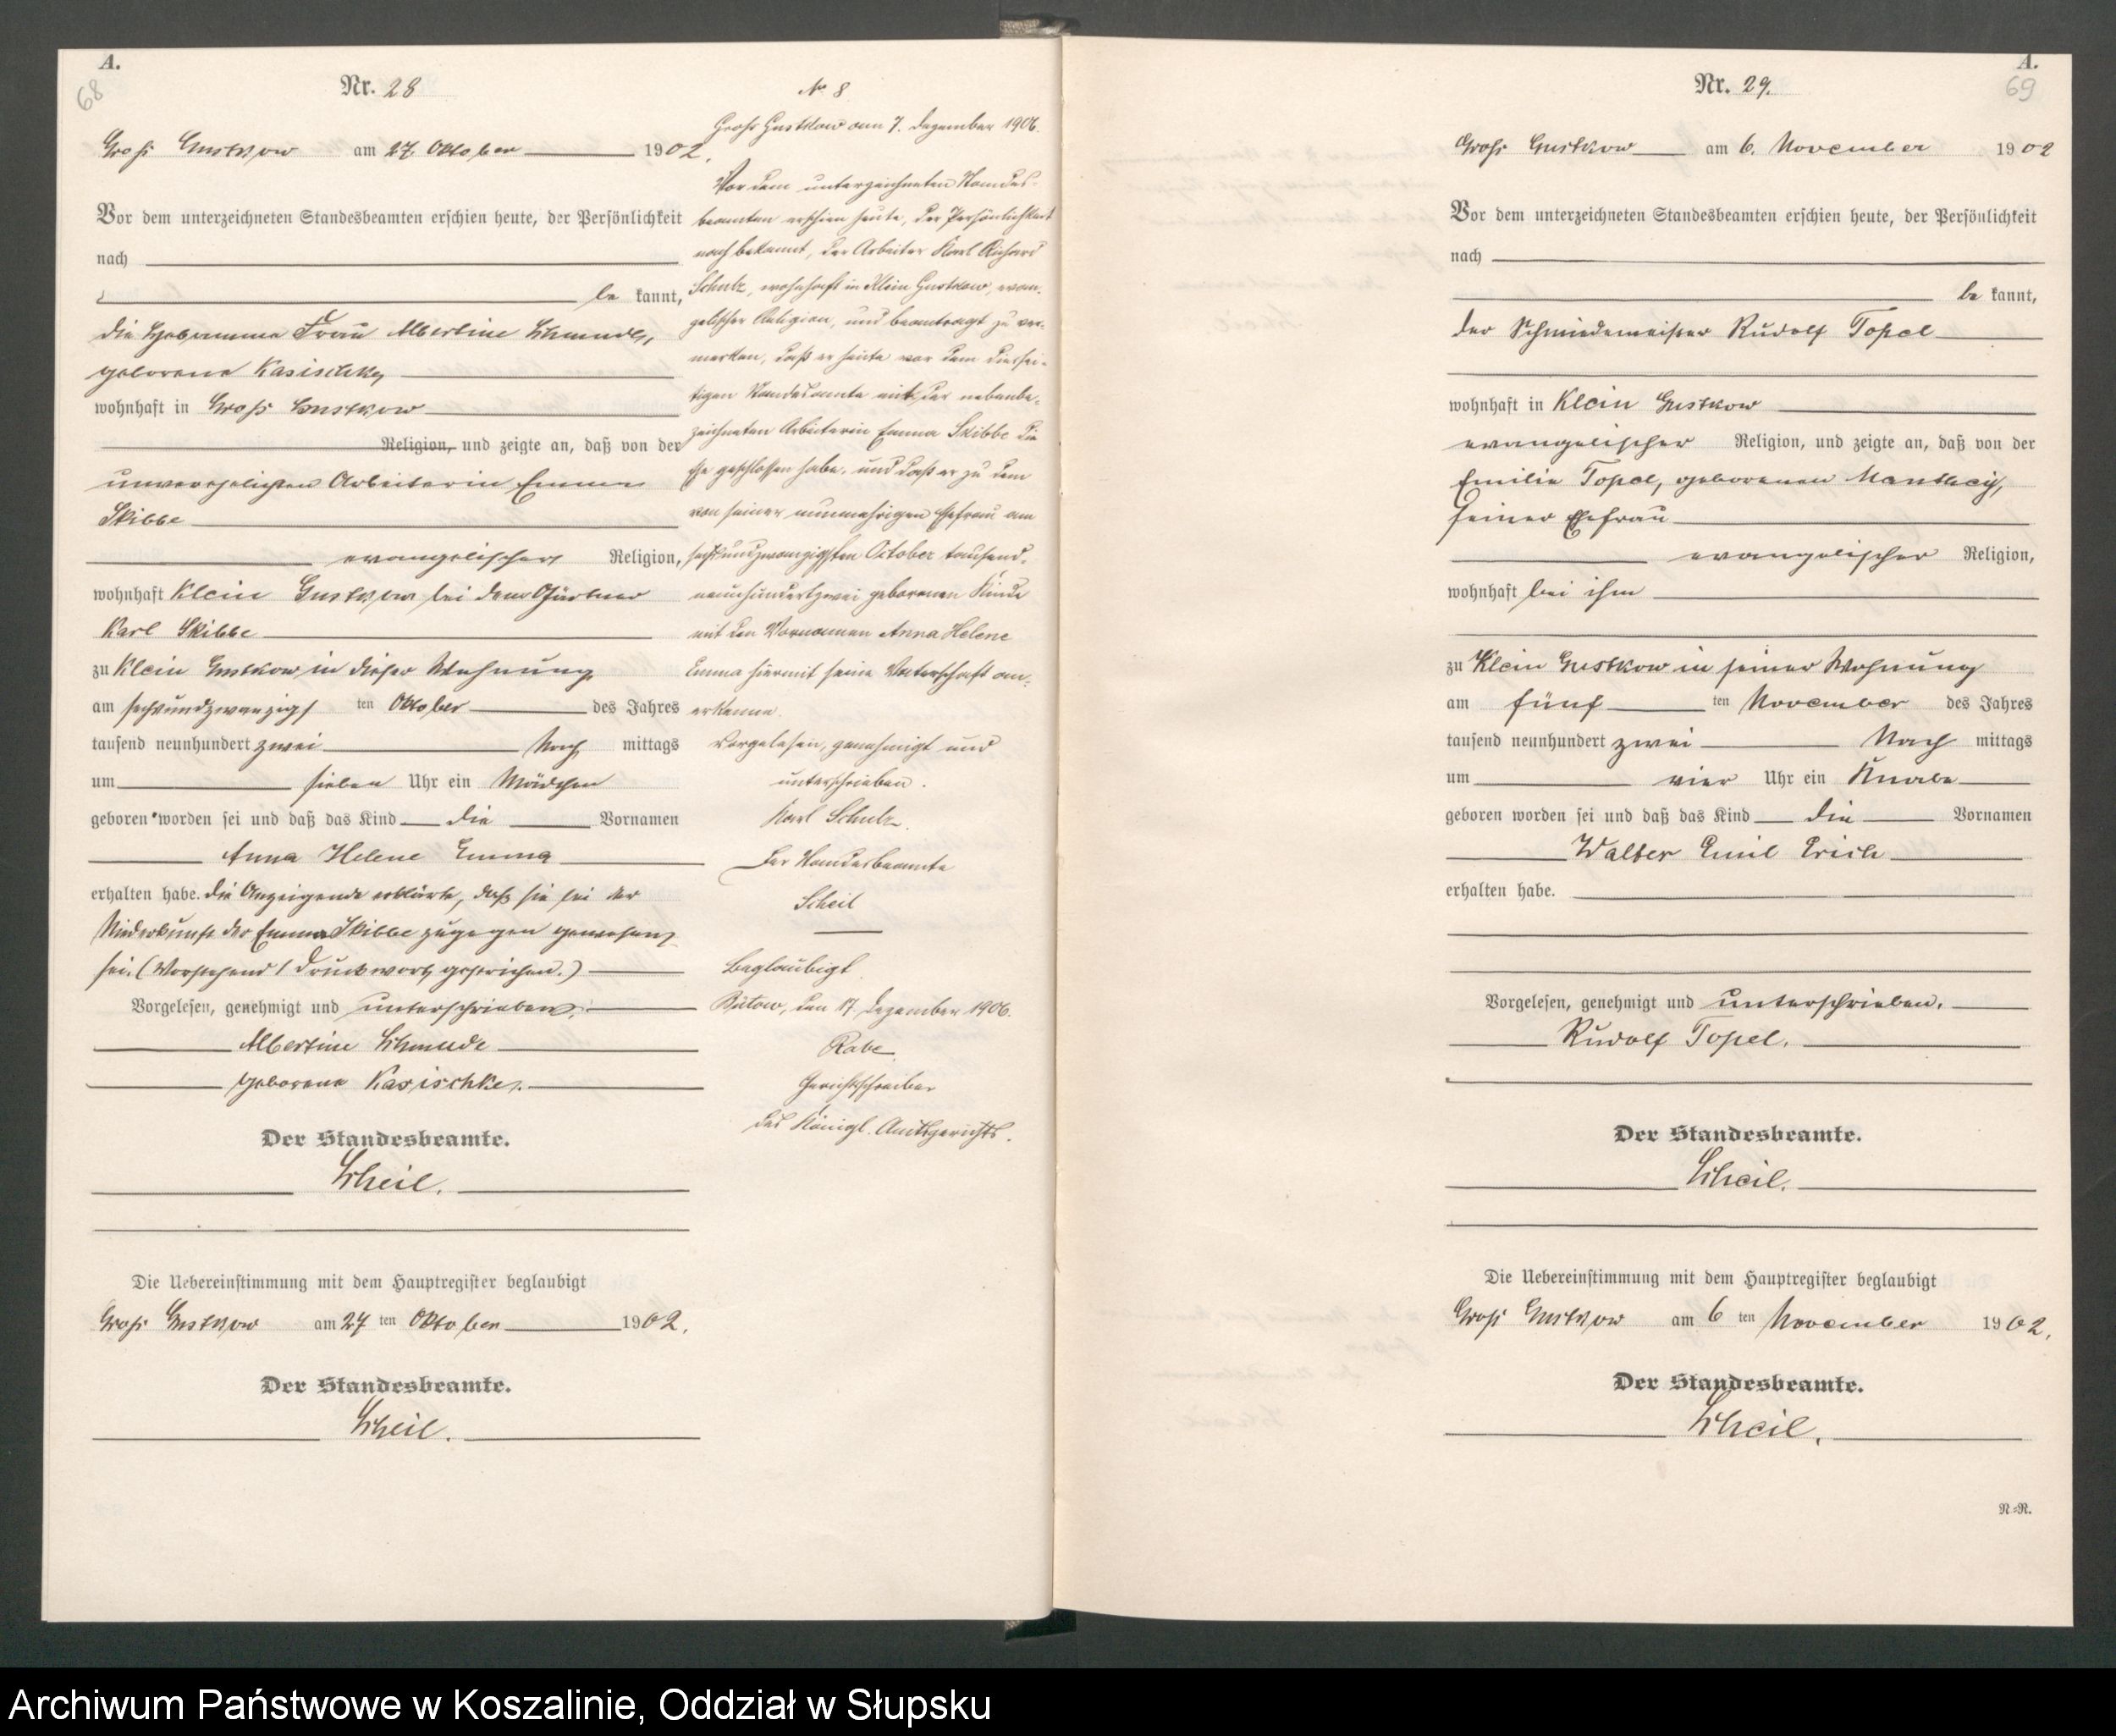 A.
68
Nr. 28
Groß Gustkow am 27. Oktober 1902.
Vor dem unterzeichneten Standesbeamten erschien heute, der Persönlichkeit
nach
be kannt,
die Hebamme Frau Albertine Schmude,
geborene Kasischke,
wohnhaft in Groß Gustkow
Religion, und zeigte an, daß von der
unverehelichten Arbeiterin Emma
Skibbe
evangelischer Religion,
wohnhaft Klein Gustkow bei dem Gärtner
Karl Skibbe
zu Klein Gustkow in dieser Wohnung
am sechsundzwanzigs ten Oktober des Jahres
tausend neunhundert zwei Nach mittags
um sieben Uhr ein Mädchen
geboren worden sei und daß das Kind die Vornamen
Anna Helene Emma
erhalten habe. Die Anzeigende erklärte, daß sie bei der
Niederkunft der Emma Skibbe zugegen gewesen
sei. (Vorstehend 1 Druckwort gestrichen.)
Vorgelesen, genehmigt und unterschrieben.
Albertine Schmude
geborene Kasischke.
Der Standesbeamte.
Scheil.
Die Uebereinstimmung mit dem Hauptregister beglaubigt
Groß Gustkow am 27 ten Oktober 1902.
Der Standesbeamte.
Scheil.
No 8
Groß Gustkow am 7. Dezember 1906.
Vor dem unterzeichneten Standes-
beamten erschien heute, der Persönlichkeit
nach bekannt, der Arbeiter Karl Richard
Schulz, wohnhaft in Klein Gustkow, evan-
gelischer Religion, und beantragt zu ver-
merken, daß er heute vor dem diessei-
tigen Standesamte mit der nebenbe-
zeichneten Arbeiterin Emma Skibbe die
Ehe geschlossen habe, und daß er zu dem
von seiner nunmehrigen Ehefrau am
sechsundzwanzigsten October tausend-
neunhundertzwei geborenen Kinde
mit den Vornamen Anna Helene
Emma hiermit seine Vaterschaft an-
erkenne.
Vorgelesen, genehmigt und
unterschrieben.
Karl Schulz.
Der Standesbeamte
Scheil
Beglaubigt
Bütow, den 17. Dezember 1906.
Rabe
Gerichtsschreiber
des Königl. Amtsgerichts.
A.
69
Nr. 29.
Groß Gustkow am 6. November 1902
Vor dem unterzeichneten Standesbeamten erschien heute, der Persönlichkeit
nach
be kannt,
der Schmiedemeister Rudolf Topel
wohnhaft in Klein Gustkow
evangelischer Religion, und zeigte an, daß von der
Emilie Topel, geborenen Manthey,
seiner Ehefrau
evangelischer Religion,
wohnhaft bei ihm
zu Klein Gustkow in seiner Wohnung
am fünf ten November des Jahres
tausend neunhundert zwei Nach mittags
um vier Uhr ein Knabe
geboren worden sei und daß das Kind die Vornamen
Walter Emil Erich
erhalten habe.
Vorgelesen, genehmigt und unterschrieben.
Rudolf Topel.
Der Standesbeamte.
Scheil.
Die Uebereinstimmung mit dem Hauptregister beglaubigt
Groß Gustkow am 6 ten November 1902.
Der Standesbeamte.
Scheil.
N=R.
Archiwum Państwowe w Koszalinie, Oddział w Słupsku